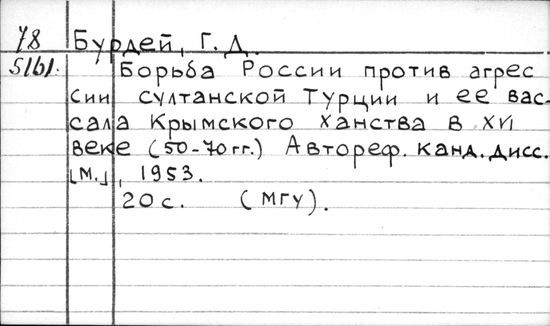 78 Бурдей, Г. Д.
5161. Борьба России против агрес
сии султанской Турции и ее вас-
сала Крымского ханства в XVI
веке (50-70 гг.) Автореф. канд. дисс.
[М.], 1953.
20 с. (МГУ).